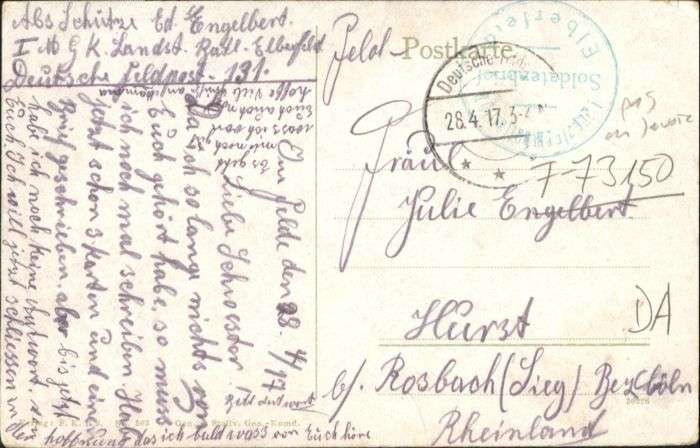 Abs Schütze Ed. Engelbert.
I M G K. Landst. Batl. Elberfeld
Deutsche Feldpost. 131.
Feld-Postkarte
Elberfeld
Soldatenbrief
Deutsche
28.4.17.3-4N
pas
en service
7-73150
Fräul
Julie Engelbert.
Hurst
DA
b/ Rosbach (Sieg) Bez Cöln
Rheinland
Im Felde den 28. 4/17
Liebe Schwester
Da ich so lange nichts von
Euch gehört habe, so muss
ich noch mal schreiben. Habe
jetzt schon 3 Karten und ein
Brief geschrieben. aber bis jetzt
habe ich noch keine Antwort v.
Euch. Ich will jetzt schliessen in
der Hoffnung das ich bald was von Euch höre
Es geht
mir noch gut
was ich von
Euch auch
hoffe viele Grüße
Bald Antwort